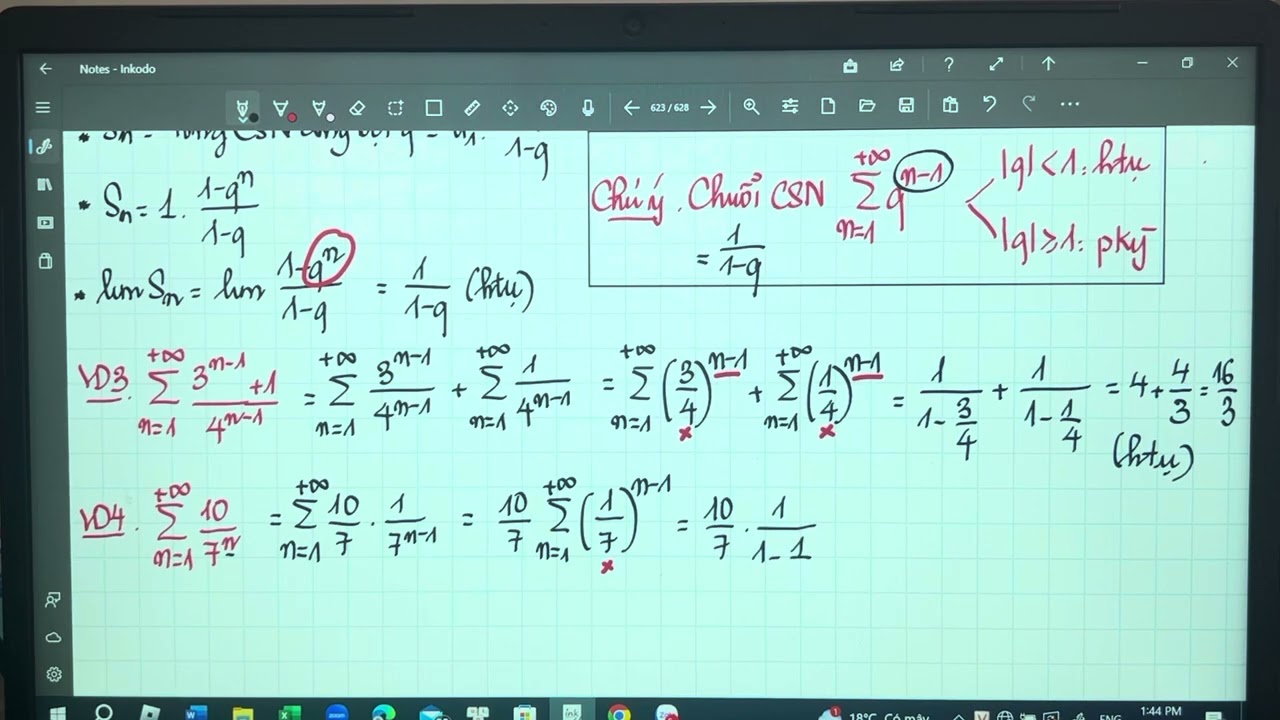 Notes - Inkodo
623 / 628
* Sn = Tổng CSN công bội q = u1. / 1-q
* Sn = 1. (1-q^n)/(1-q)
* lim Sn = lim (1-q^n)/(1-q) = 1/(1-q) (htụ)
Chú ý. Chuỗi CSN ∑_{n=1}^{+∞} q^{n-1}
|q| < 1: htụ
|q| ≥ 1: pkỳ
= 1/(1-q)
VD3. ∑_{n=1}^{+∞} (3^{n-1}+1)/4^{n-1} = ∑_{n=1}^{+∞} 3^{n-1}/4^{n-1} + ∑_{n=1}^{+∞} 1/4^{n-1} = ∑_{n=1}^{+∞} (3/4)^{n-1} + ∑_{n=1}^{+∞} (1/4)^{n-1} = 1/(1-3/4) + 1/(1-1/4) = 4 + 4/3 = 16/3
(htụ)
VD4. ∑_{n=1}^{+∞} 10/7^n = ∑_{n=1}^{+∞} 10/7 . 1/7^{n-1} = 10/7 ∑_{n=1}^{+∞} (1/7)^{n-1} = 10/7 . 1/(1-1
18°C Có mây
ENG
1:44 PM